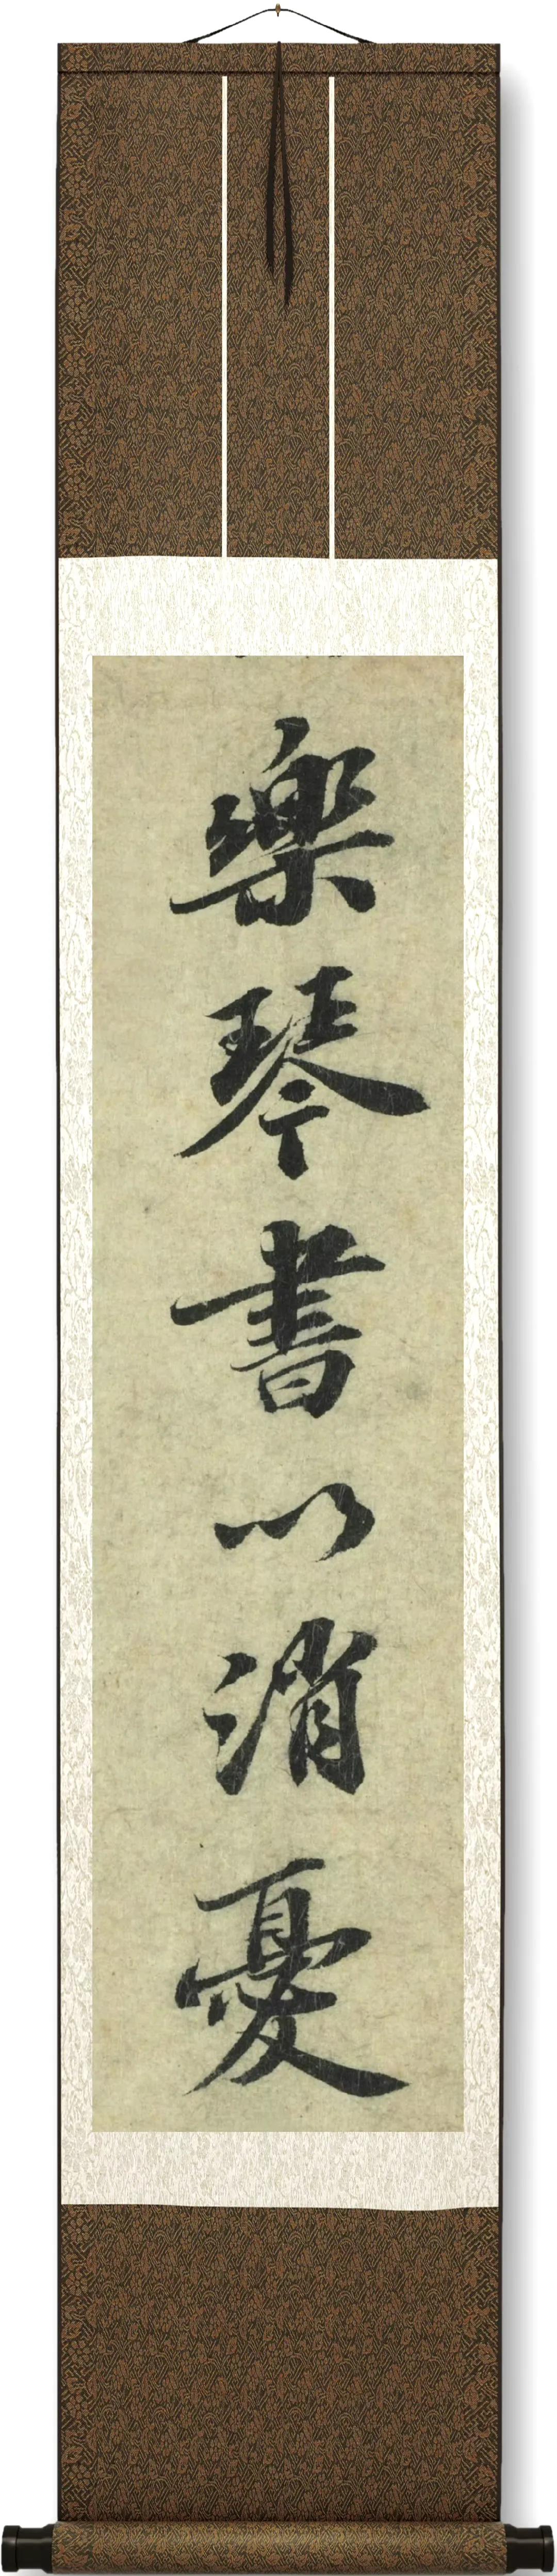 樂琴書以消憂